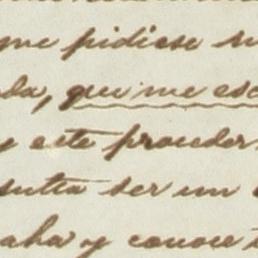 que pidiese su
da, que me esc
y este proceder
sulta ser un
aba y conoce